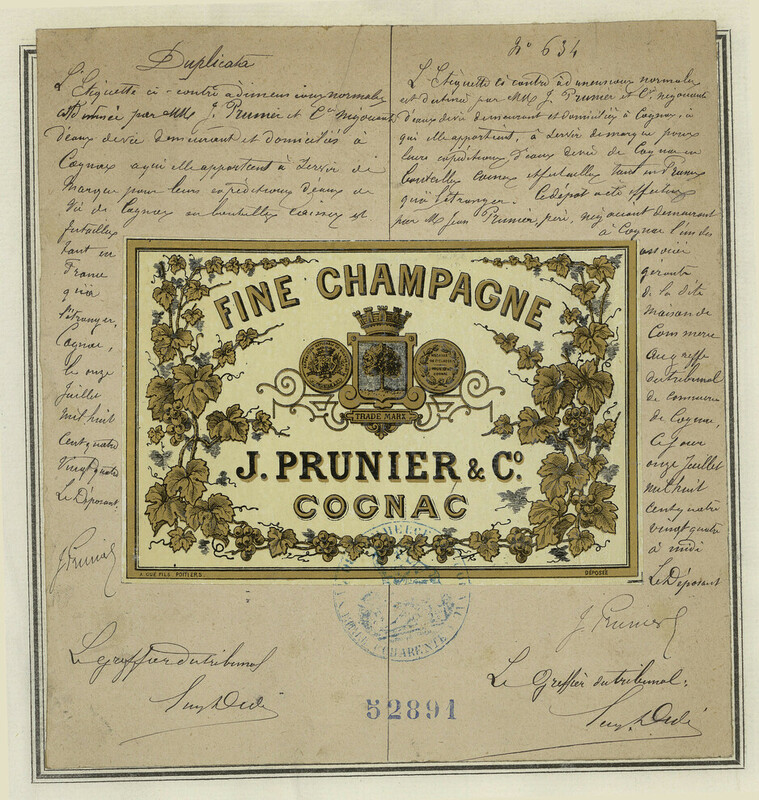 Duplicata
L'Etiquette ci-contre à dimensions normales
est destinée par MM. J. Prunier et Cie négociants
d'eaux de vie demeurant et domiciliés à
Cognac a qui elle appartient à servir de
marque pour leurs expéditions d'eaux de
vie de Cognac en bouteilles caisses et
futailles
tant en
France
qu'à
l'étranger.
Cognac,
le onze
Juillet
mil huit
cent quatre
vingt quatre
Le Déposant.
J. Prunier
Le greffier du tribunal
No 634
L'Etiquette ci contre à dimensions normales
est destinée par MM. J. Prunier et Cie négociants
d'eaux de vie demeurant et domiciliés à Cognac, à
qui elle appartient, à servir de marque pour
leurs expéditions d'eaux de vie de Cognac en
bouteilles caisses et futailles tant en France
qu'à l'étranger. Le dépôt a été effectué
par M. Jean Prunier, père, négociant demeurant
à Cognac l'un des
associés
gérants
de la dite
maison de
Commerce
au greffe
du tribunal
de commerce
de Cognac,
Ce jour
onze Juillet
mil huit
cent quatre
vingt quatre
à midi
Le Déposant
J. Prunier
Le Greffier du tribunal.
FINE CHAMPAGNE
TRADE MARK
J. PRUNIER & Co.
COGNAC
POITIERS.
DÉPOSÉE
CHARENTE
52891